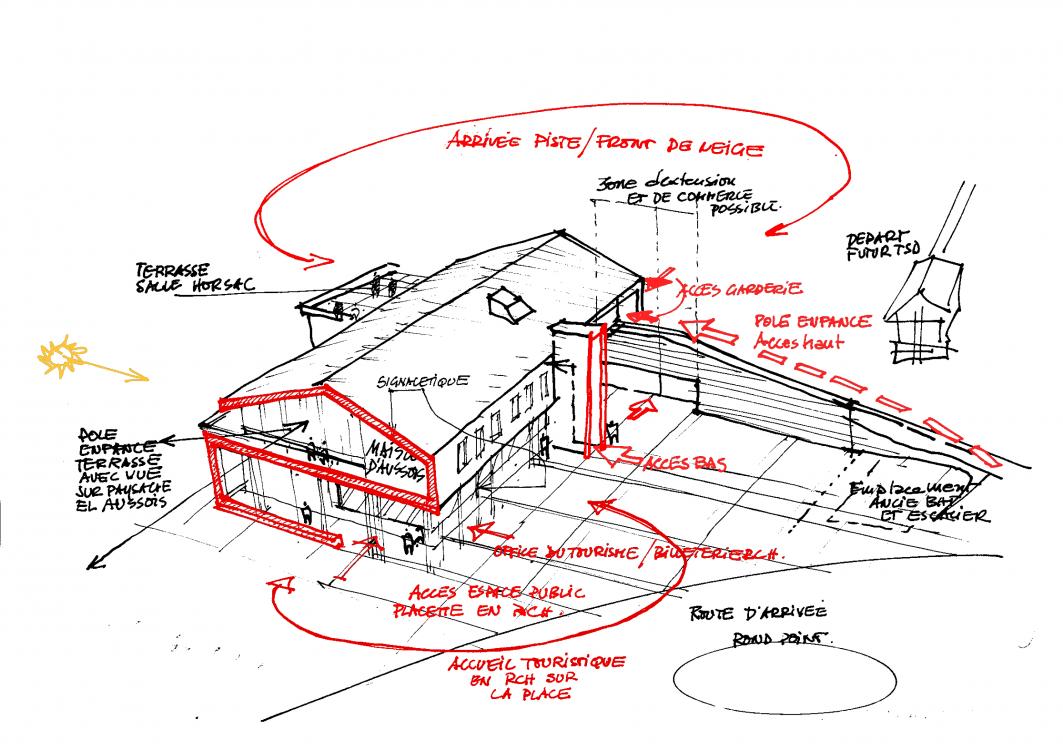 ARRIVÉE PISTE/FRONT DE NEIGE
Zone d'extension
ET DE COMMERCE
POSSIBLE.
DEPART
FUTUR TSD
TERRASSE
SALLE HORSAC
ACCES GARDERIE
POLE ENFANCE
Acces haut
SIGNALETIQUE
MAISON
D'AUSSOIS
POLE
ENFANCE
TERRASSE
AVEC VUE
SUR PAYSAGE
EL AUSSOIS
ACCES BAS
Emplacement
ANCIE BAT
ET ESCALIER
OFFICE DU TOURISME/BILLETERIE RCH.
ACCES ESPACE PUBLIC
PLACETTE EN RCH.
ROUTE D'ARRIVÉE
ROND POINT.
ACCUEIL TOURISTIQUE
EN RCH SUR
LA PLACE